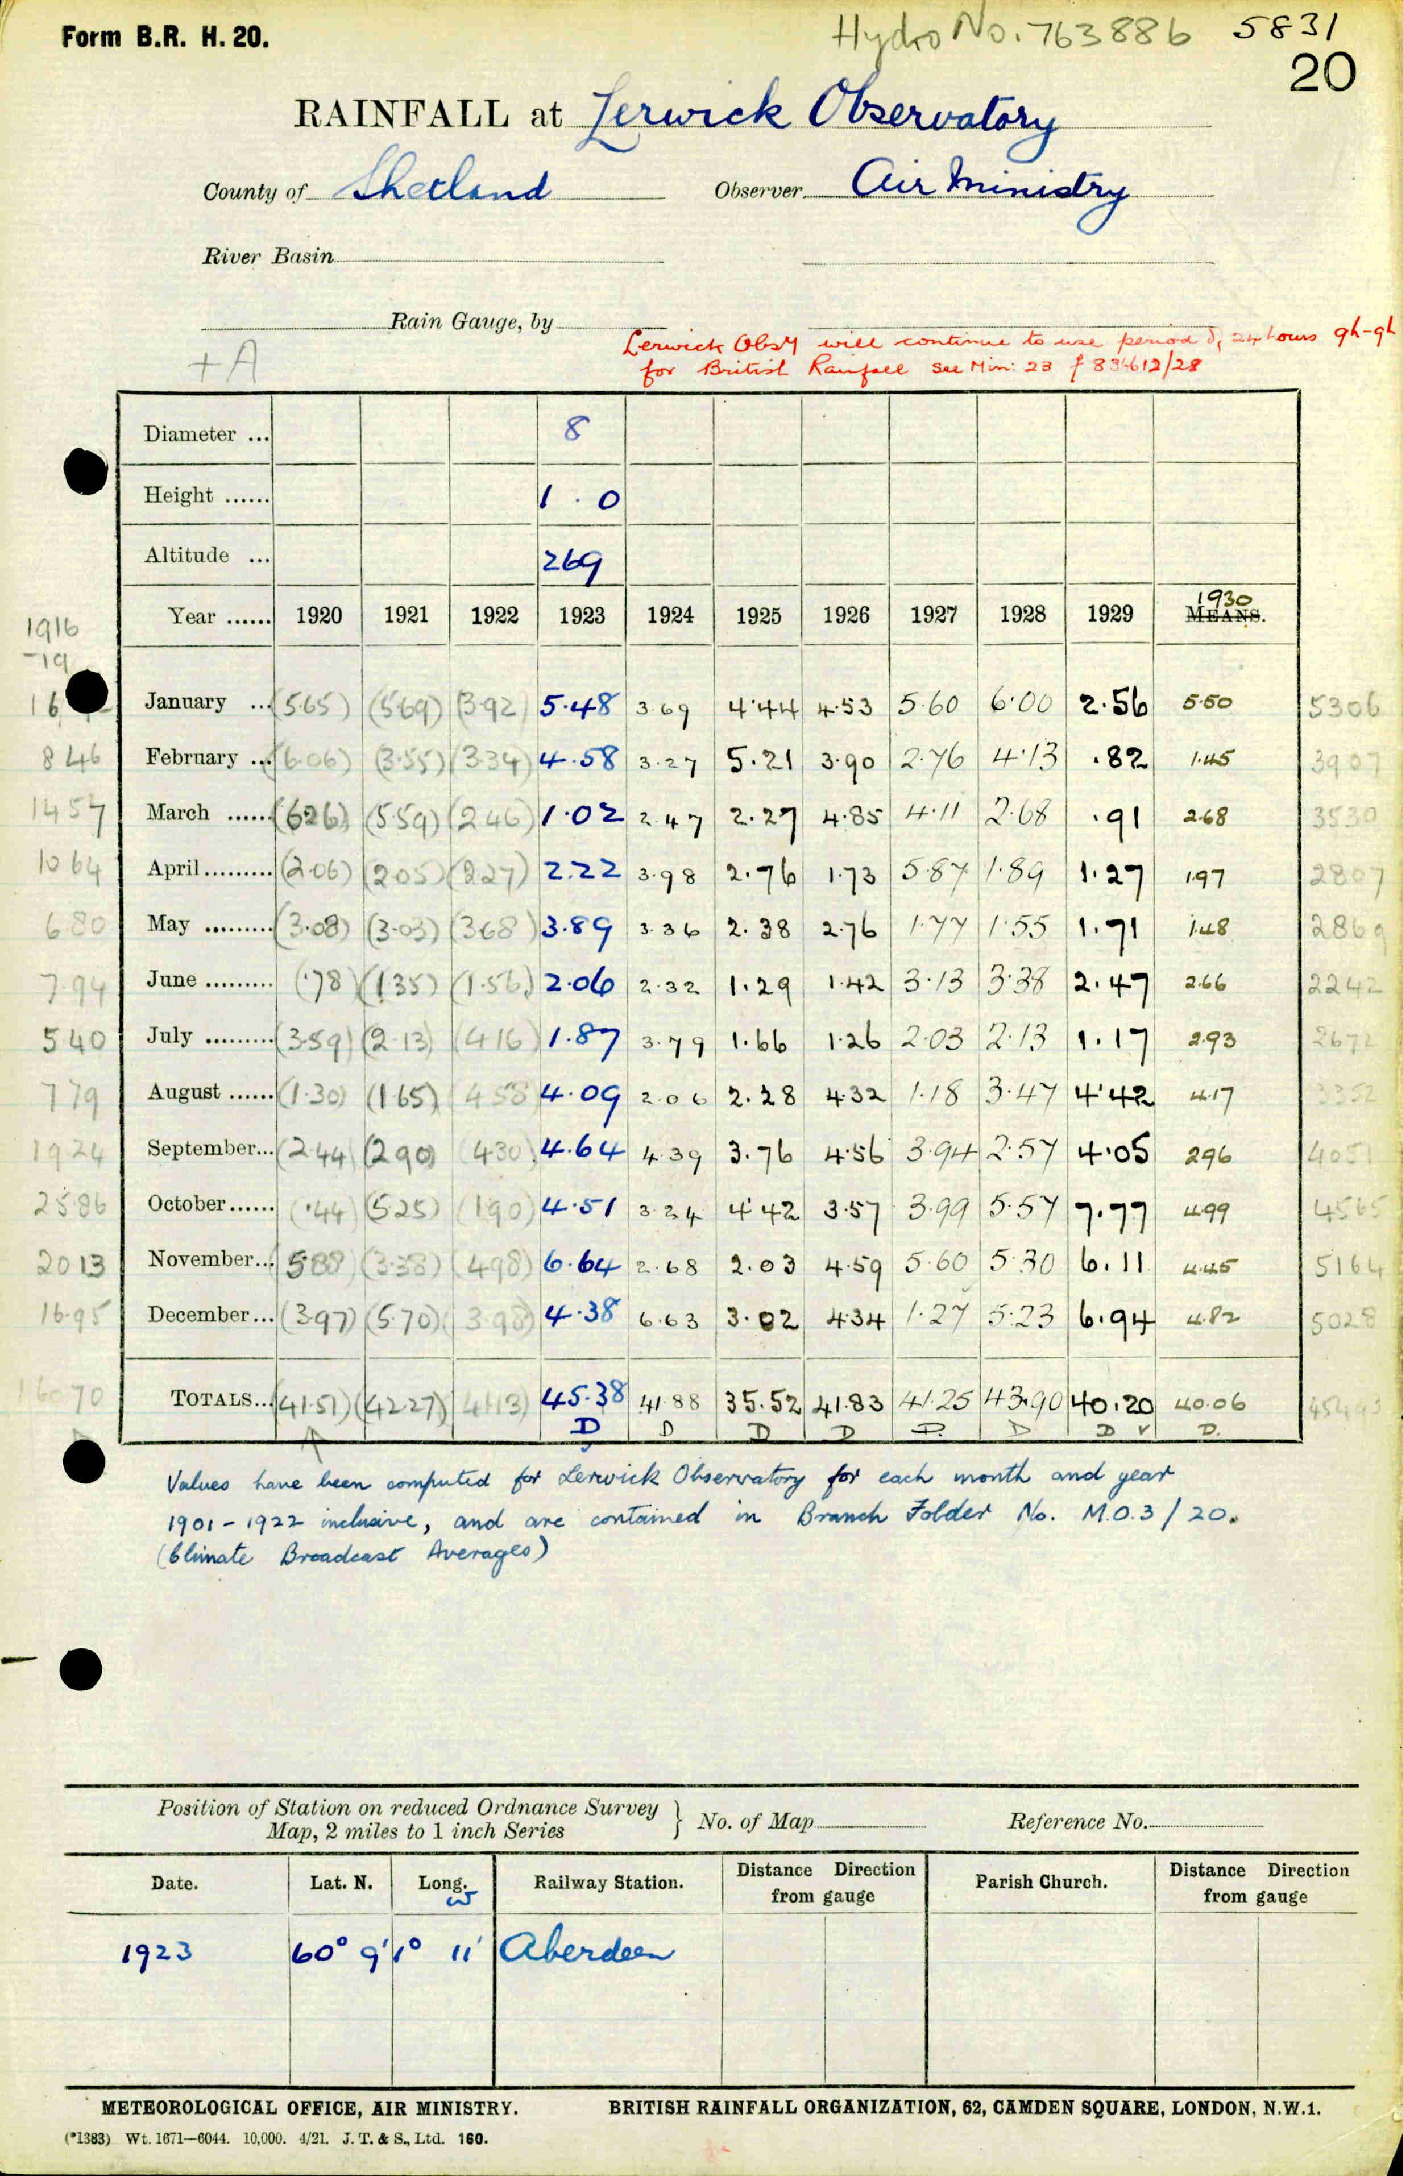 Form B.R. H. 20.
Hydro No. 763886 5831
20
RAINFALL at Lerwick Observatory
County of Shetland Observer Air Ministry
River Basin
Rain Gauge, by
+A
Lerwick Obsy will continue to use period of 24 hours 9h-9h
for British Rainfall see Min: 23 f 834612/28
Diameter ... 8
Height ...... 1.0
Altitude ... 269
1930
Year ...... 1920 1921 1922 1923 1924 1925 1926 1927 1928 1929 MEANS.
1916
-19
January ... (5.65) (5.69) (3.92) 5.48 3.69 4.44 4.53 5.60 6.00 2.56 5.50 5306
846 February ... (6.06) (3.55) (3.34) 4.58 3.27 5.21 3.90 2.76 4.13 .82 1.45 3907
1457 March ...... (6.26) (5.59) (2.46) 1.02 2.47 2.27 4.85 4.11 2.68 .91 2.68 3530
1064 April ......... (2.06) (2.05) (2.27) 2.22 3.98 2.76 1.73 5.87 1.89 1.27 1.97 2807
680 May ......... (3.08) (3.03) (3.68) 3.89 3.36 2.38 2.76 1.77 1.55 1.71 1.48 2869
7.94 June ......... (.78) (1.35) (1.56) 2.06 2.32 1.29 1.42 3.13 3.38 2.47 2.66 2242
540 July ......... (3.59) (2.13) (4.16) 1.87 3.79 1.66 1.26 2.03 2.13 1.17 2.93 2672
779 August ...... (1.30) (1.65) (4.58) 4.09 2.06 2.28 4.32 1.18 3.47 4.42 4.17 3352
1924 September... (2.44) (2.90) (4.30) 4.64 4.39 3.76 4.56 3.94 2.57 4.05 2.96 4051
2586 October ...... (.44) (5.25) (1.90) 4.51 3.24 4.42 3.57 3.99 5.57 7.77 4.99 4565
2013 November... (5.88) (3.38) (4.98) 6.64 2.68 2.03 4.59 5.60 5.30 6.11 4.45 5164
16.95 December... (3.97) (5.70) (3.98) 4.38 6.63 3.02 4.34 1.27 5.23 6.94 4.82 5028
16070 TOTALS... (41.51) (42.27) (41.13) 45.38 41.88 35.52 41.83 41.25 43.90 40.20 40.06 45493
D D D D D D D D.
Values have been computed for Lerwick Observatory for each month and year
1901-1922 inclusive, and are contained in Branch Folder No. M.O.3/20.
(Climate Broadcast Averages)
Position of Station on reduced Ordnance Survey
Map, 2 miles to 1 inch Series } No. of Map Reference No.
Date. Lat. N. Long. W Railway Station. Distance Direction from gauge Parish Church. Distance Direction from gauge
1923 60° 9' 1° 11' Aberdeen
METEOROLOGICAL OFFICE, AIR MINISTRY. BRITISH RAINFALL ORGANIZATION, 62, CAMDEN SQUARE, LONDON, N.W.1.
(*1383) Wt. 1671—6044. 10,000. 4/21. J. T. & S., Ltd. 160.